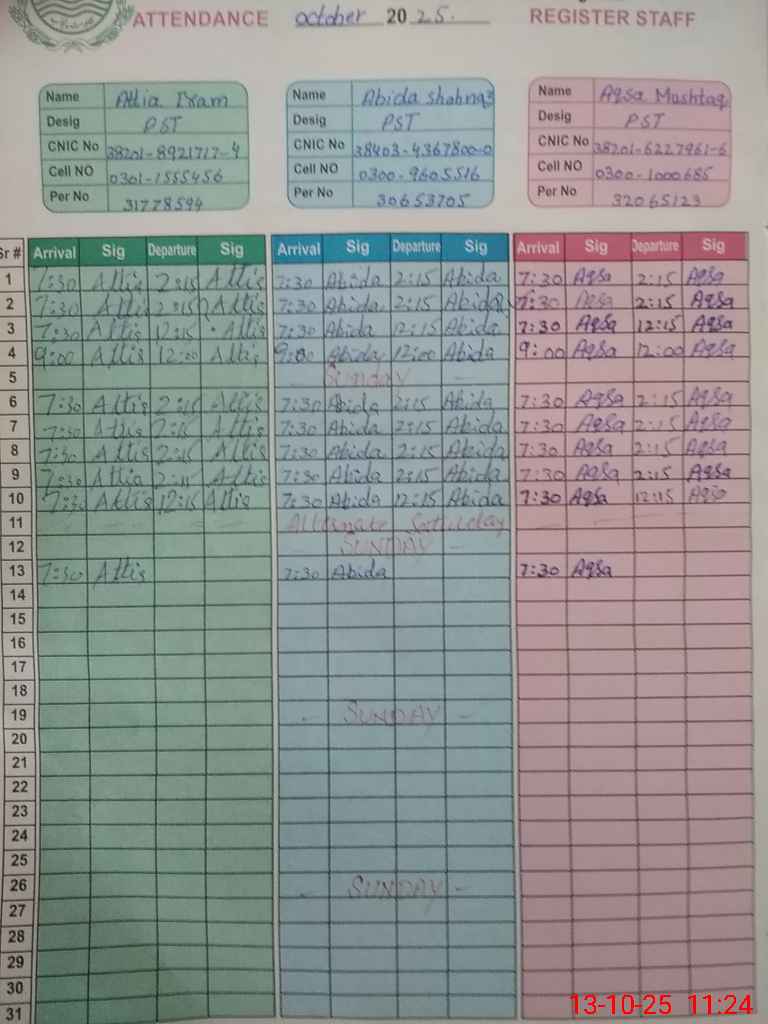 ATTENDANCE october 2025. REGISTER STAFF
Name Attia Iram Name Abida Shahnaz Name Aqsa Mushtaq
Desig PST Desig PST Desig PST
CNIC No 38201-8921717-4 CNIC No 38403-4367800-0 CNIC No 38201-6227961-6
Cell NO 0301-1555456 Cell NO 0300-9605516 Cell NO 0300-1000685
Per No 31778594 Per No 30653705 Per No 32065123
Sr # Arrival Sig Departure Sig Arrival Sig Departure Sig Arrival Sig Departure Sig
1 7:30 Attis 2:15 Attis 7:30 Abida 2:15 Abida 7:30 Aqsa 2:15 Aqsa
2 7:30 Attis 2:15 Attis 7:30 Abida 2:15 Abida 7:30 Aqsa 2:15 Aqsa
3 7:30 Attis 12:15 Attis 7:30 Abida 12:15 Abida 7:30 Aqsa 12:15 Aqsa
4 9:00 Attis 12:00 Attis 9:00 Abida 12:00 Abida 9:00 Aqsa 12:00 Aqsa
5 Sunday -
6 7:30 Attis 2:15 Attis 7:30 Abida 2:15 Abida 7:30 Aqsa 2:15 Aqsa
7 7:30 Attis 2:15 Attis 7:30 Abida 2:15 Abida 7:30 Aqsa 2:15 Aqsa
8 7:30 Attis 2:15 Attis 7:30 Abida 2:15 Abida 7:30 Aqsa 2:15 Aqsa
9 7:30 Attia 2:15 Attis 7:30 Abida 2:15 Abida 7:30 Aqsa 2:15 Aqsa
10 7:30 Attis 12:15 Attis 7:30 Abida 12:15 Abida 7:30 Aqsa 12:15 Aqsa
11 Alternate Saturday
12 SUNDAY -
13 7:30 Attis 7:30 Abida 7:30 Aqsa
14
15
16
17
18
19 - SUNDAY -
20
21
22
23
24
25
26 - SUNDAY -
27
28
29
30
31
13-10-25 11:24